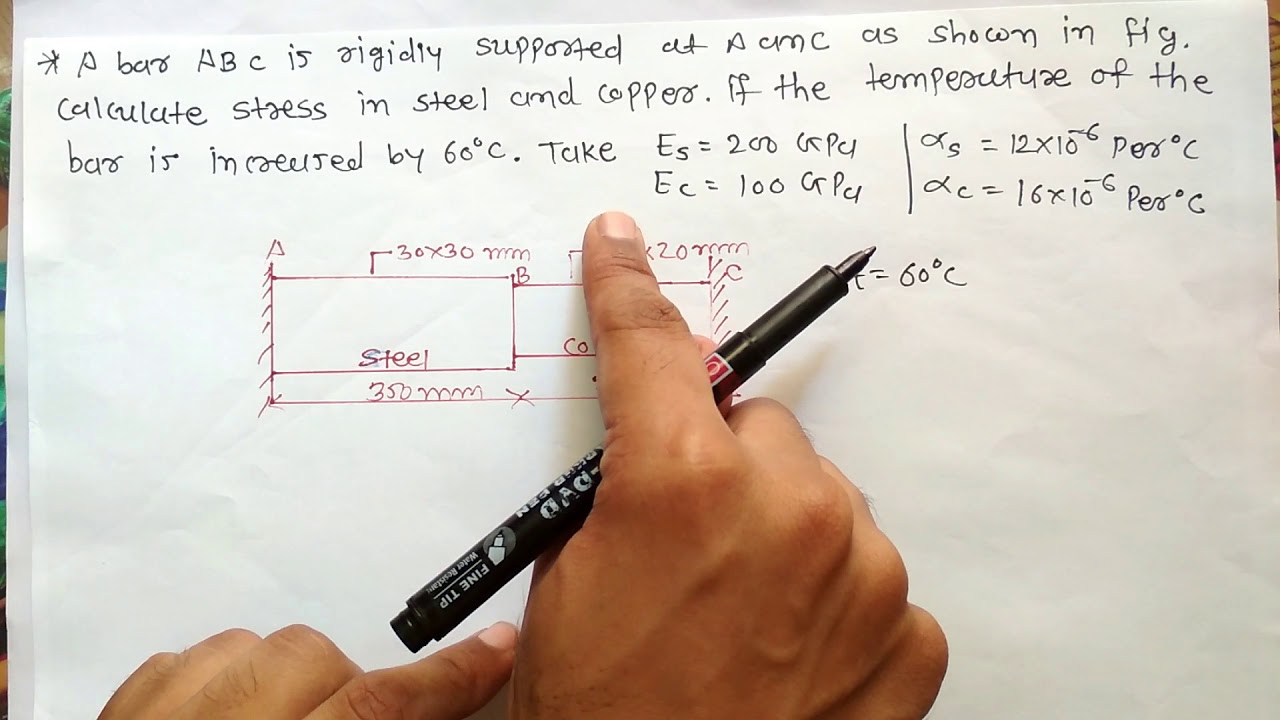 * A bar ABC is rigidly supported at A anc C as shown in fig.
Calculate stress in steel and copper. If the temperature of the
bar is increased by 60°C. Take Es = 200 GPa | αs = 12×10⁻⁶ Per°C
Ec = 100 GPa | αc = 16×10⁻⁶ Per°C
A 30×30 mm B ×20mm C
= 60°C
Steel Co
350mm
FINE TIP
Water Resistant